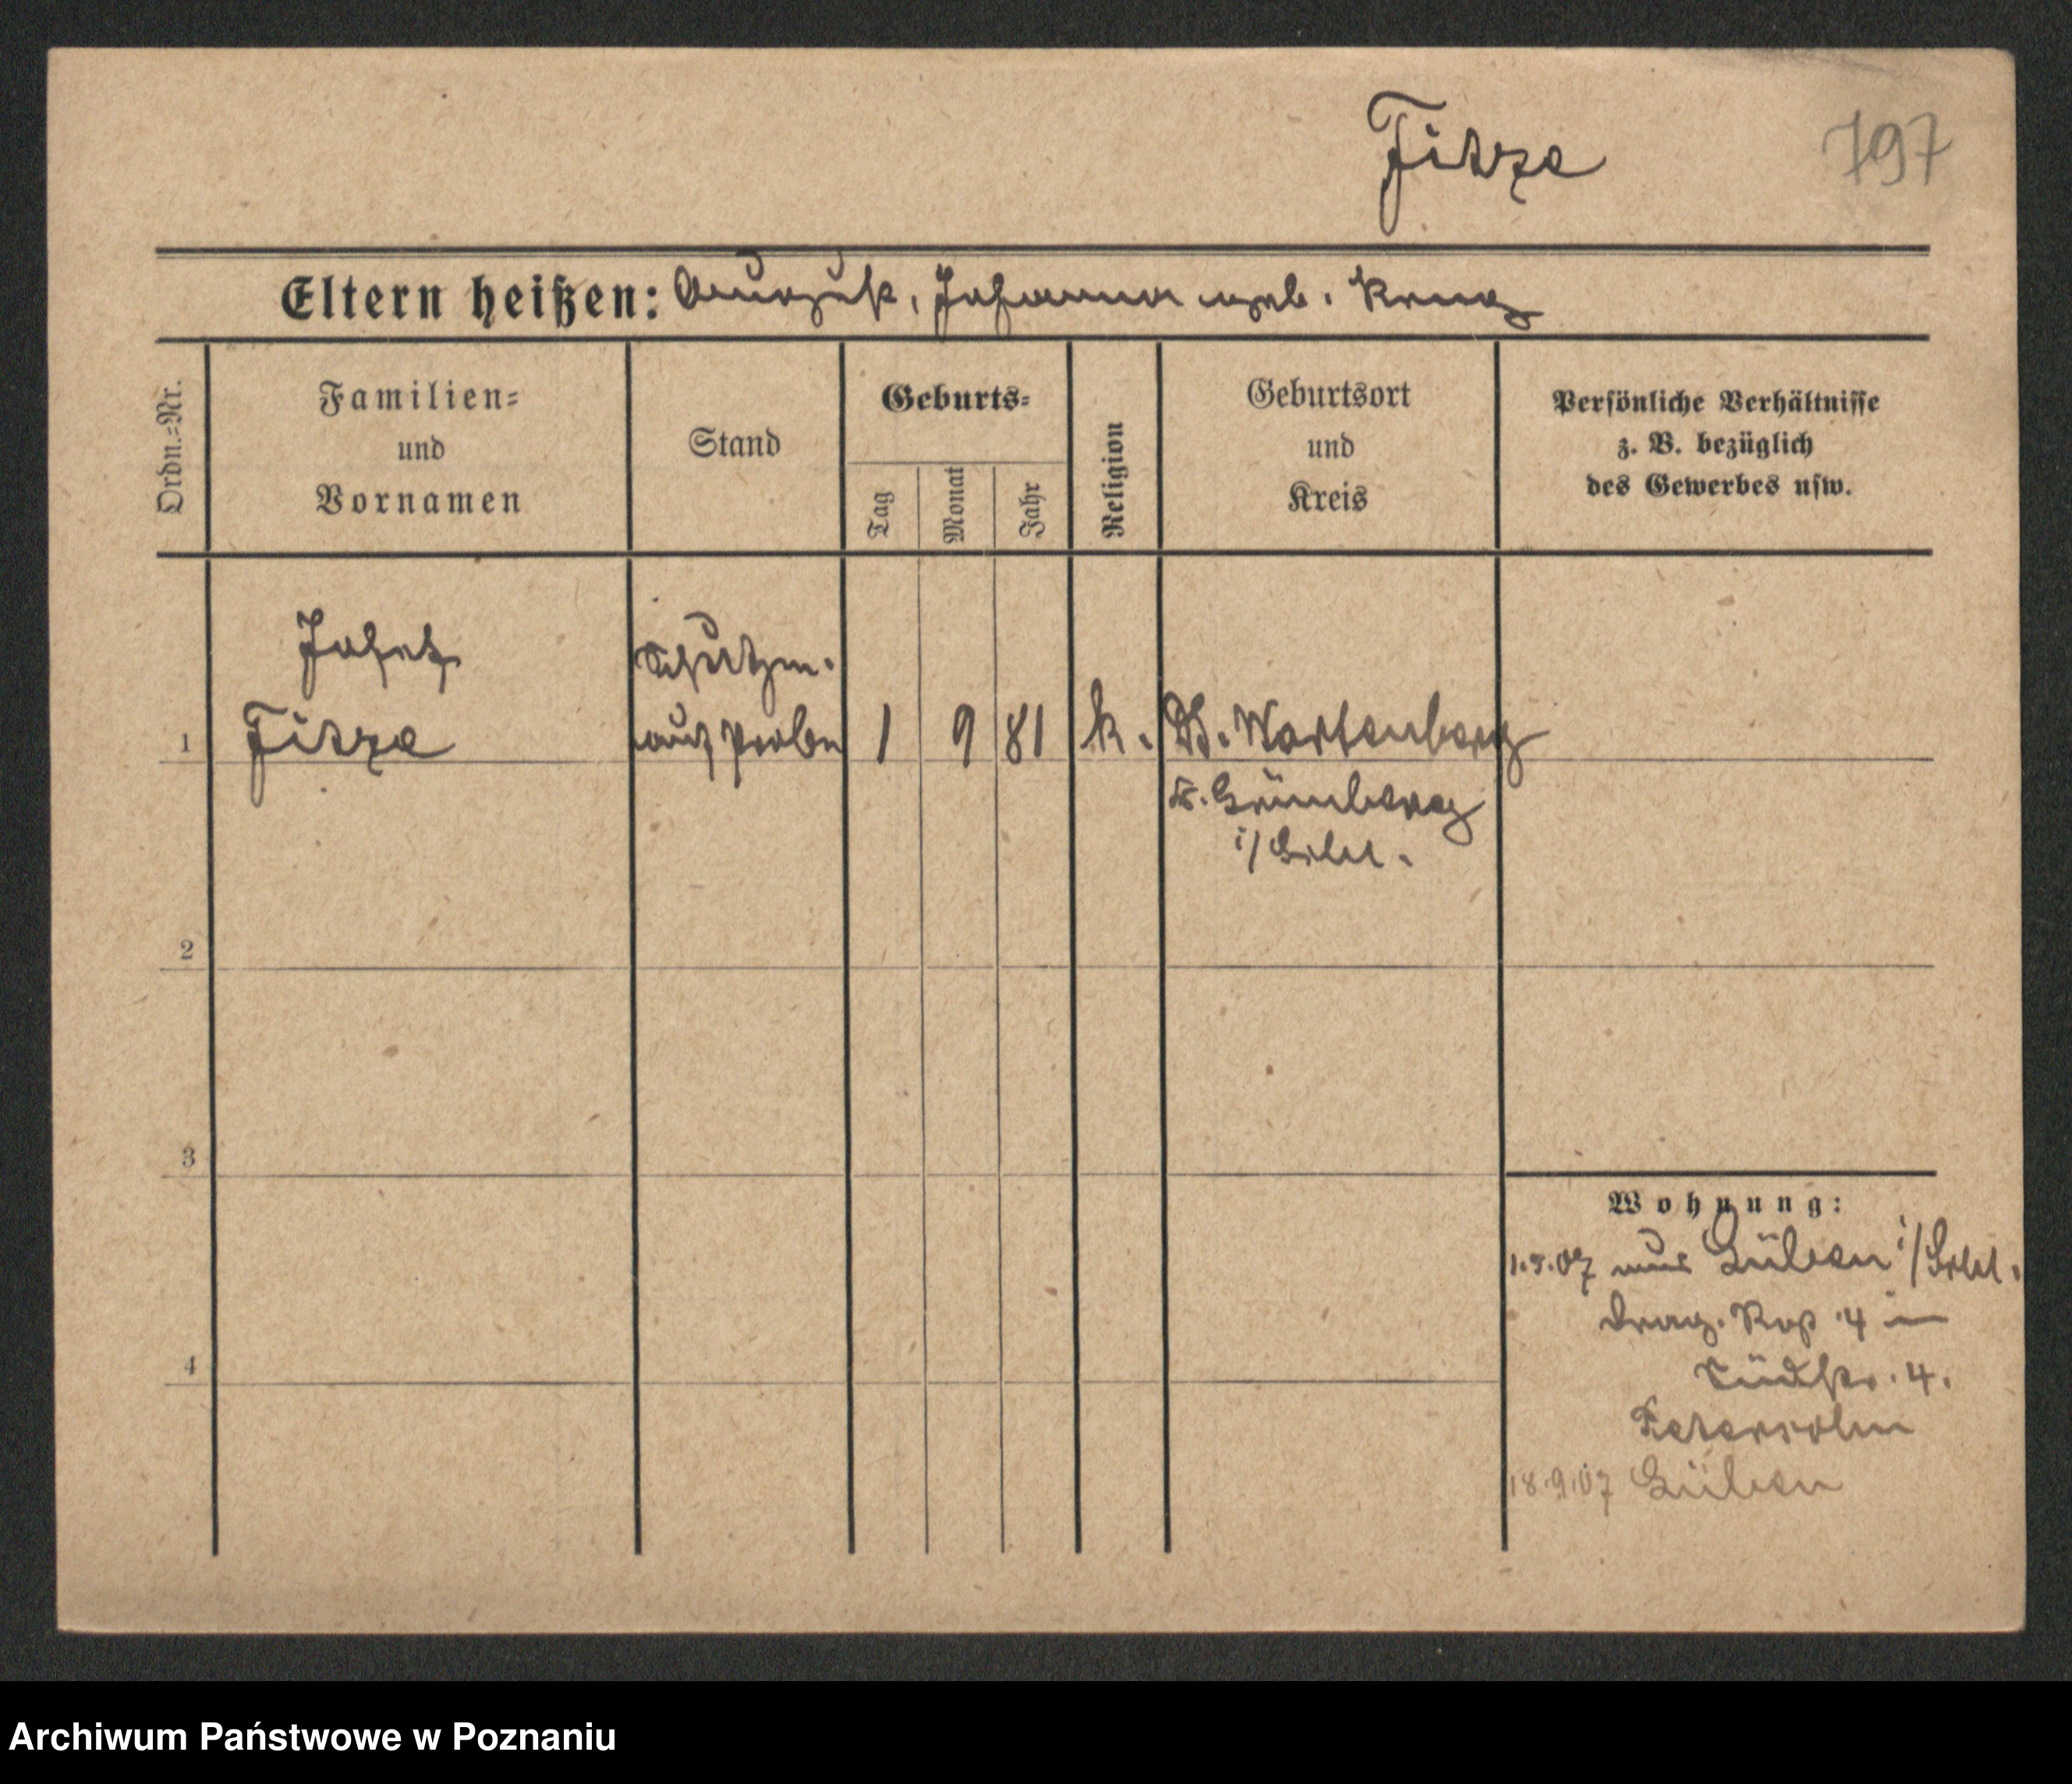 Fitze
797
Eltern heißen: August, Johanna geb. Krug
Ordn.-Nr.
Familien-
und
Vornamen
Stand
Geburts-
Tag
Monat
Jahr
Religion
Geburtsort
und
Kreis
Persönliche Verhältnisse
z. B. bezüglich
des Gewerbes usw.
Josef
Fitze
Schutzm.
auf Probe
1
1
9
81
k.
D. Wartenberg
Kr. Grünberg
i/Schl.
2
3
4
Wohnung:
1.5.07 aus Lüben i/Schl.
Drag. Rgt 4 in
Südstr. 4.
18.9.07 Lüben
Archiwum Państwowe w Poznaniu